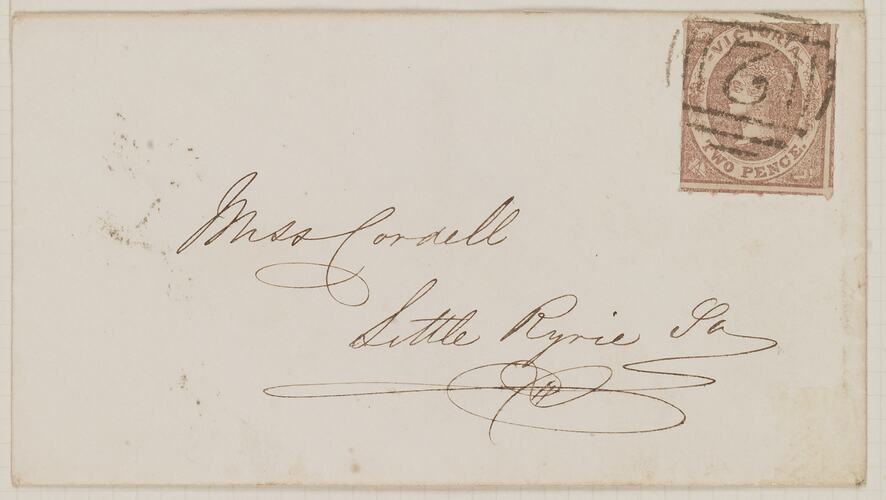 VICTORIA
TWO PENCE.
2
Miss Cordell
Little Ryrie St